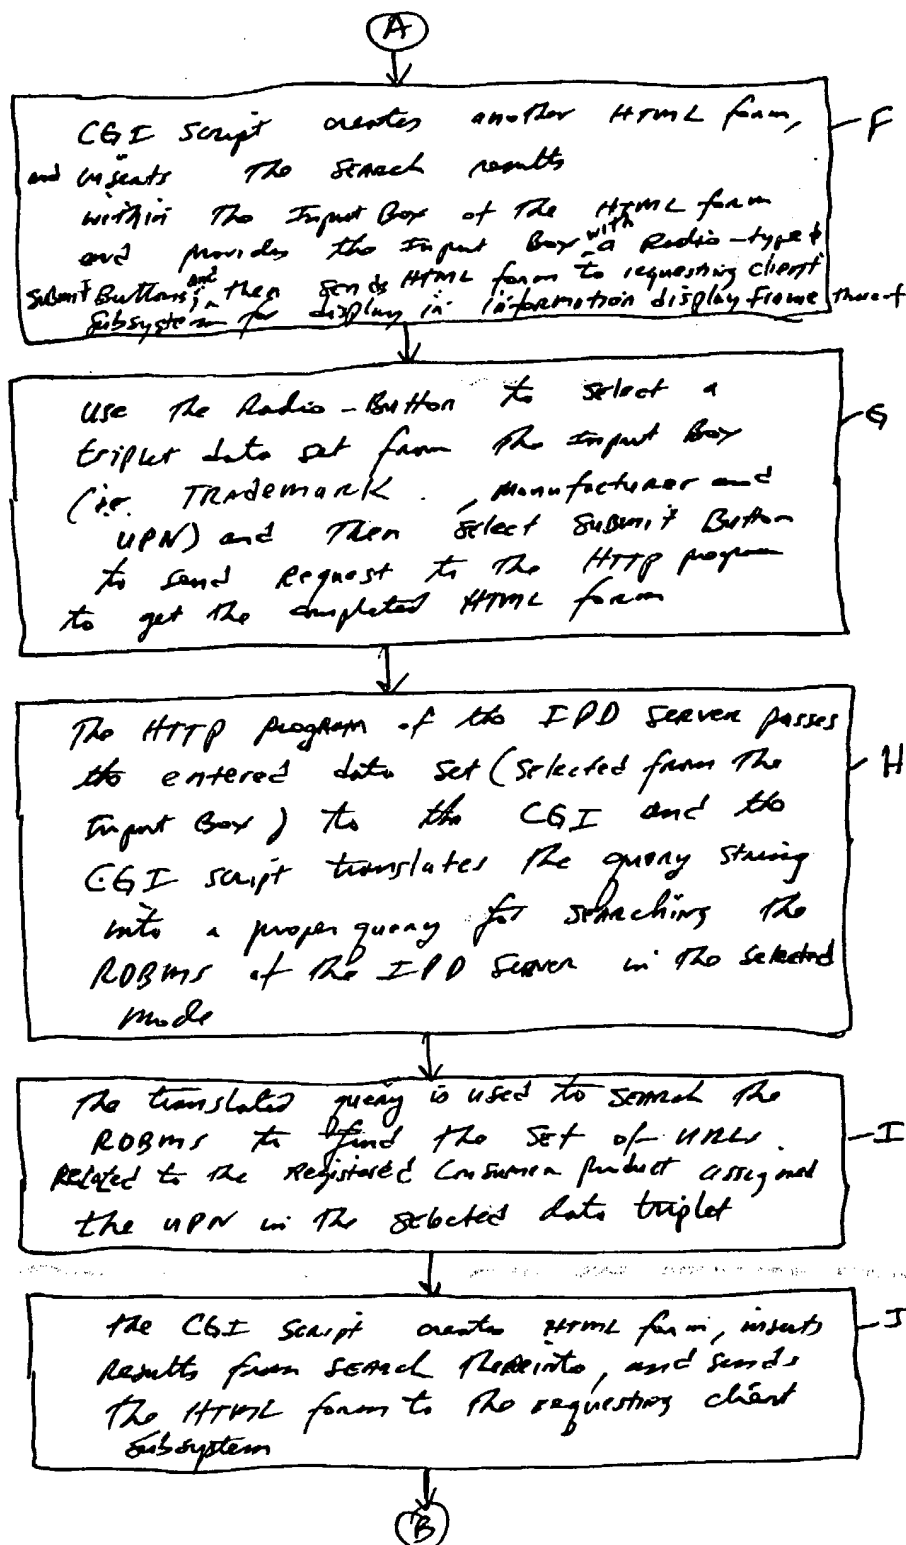 A
CGI Script creates another HTML form, F
and inserts the search results
within the Input Box of the HTML form
and provides the Input Box with a Radio-type &
Submit Buttons; and then sends HTML form to requesting client
subsystem for display in information display frame thereof
use the Radio-Button to select a
triplet data set from the Input Box G
(i.e. TRADEMARK, Manufacturer and
UPN) and then select Submit Button
to send Request to the HTTP program
to get the completed HTML form
The HTTP program of the IPD Server passes
the entered data set (selected from the H
Input Box) to the CGI and the
CGI script translates the query string
into a proper query for searching the
RDBMS of the IPD Server in the selected
mode
The translated query is used to search the
RDBMS to find the set of URLs I
Related to the Registered Consumer product assigned
the UPN in the selected data triplet
the CGI Script creates HTML form, inserts J
Results from search thereinto, and sends
the HTML form to the requesting client
subsystem
B